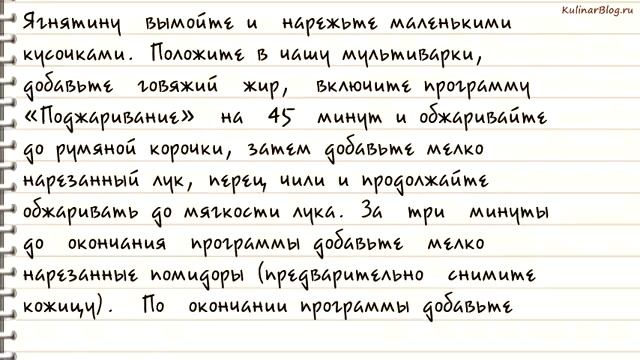 KulinarBlog.ru
Ягнятину вымойте и нарежьте маленькими
кусочками. Положите в чашу мультиварки,
добавьте говяжий жир, включите программу
«Поджаривание» на 45 минут и обжаривайте
до румяной корочки, затем добавьте мелко
нарезанный лук, перец чили и продолжайте
обжаривать до мягкости лука. За три минуты
до окончания программы добавьте мелко
нарезанные помидоры (предварительно снимите
кожицу). По окончании программы добавьте